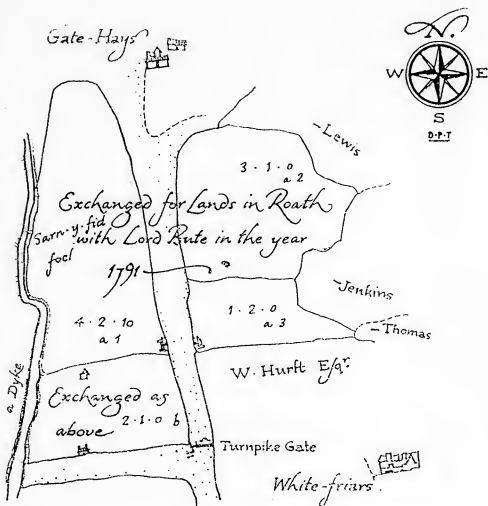 Gate-Hays
N.
W
E
S
D·P·T
-Lewis
3·1·0
a 2
Exchanged for Lands in Roath
Sarn·y·fid
with Lord Bute in the year
focl
1791
-Jenkins
1·2·0
a 3
-Thomas
4·2·10
a 1
W. Hurst Esqr.
a Dyke
Exchanged as
2·1·0 b
above
Turnpike Gate
White-friars.